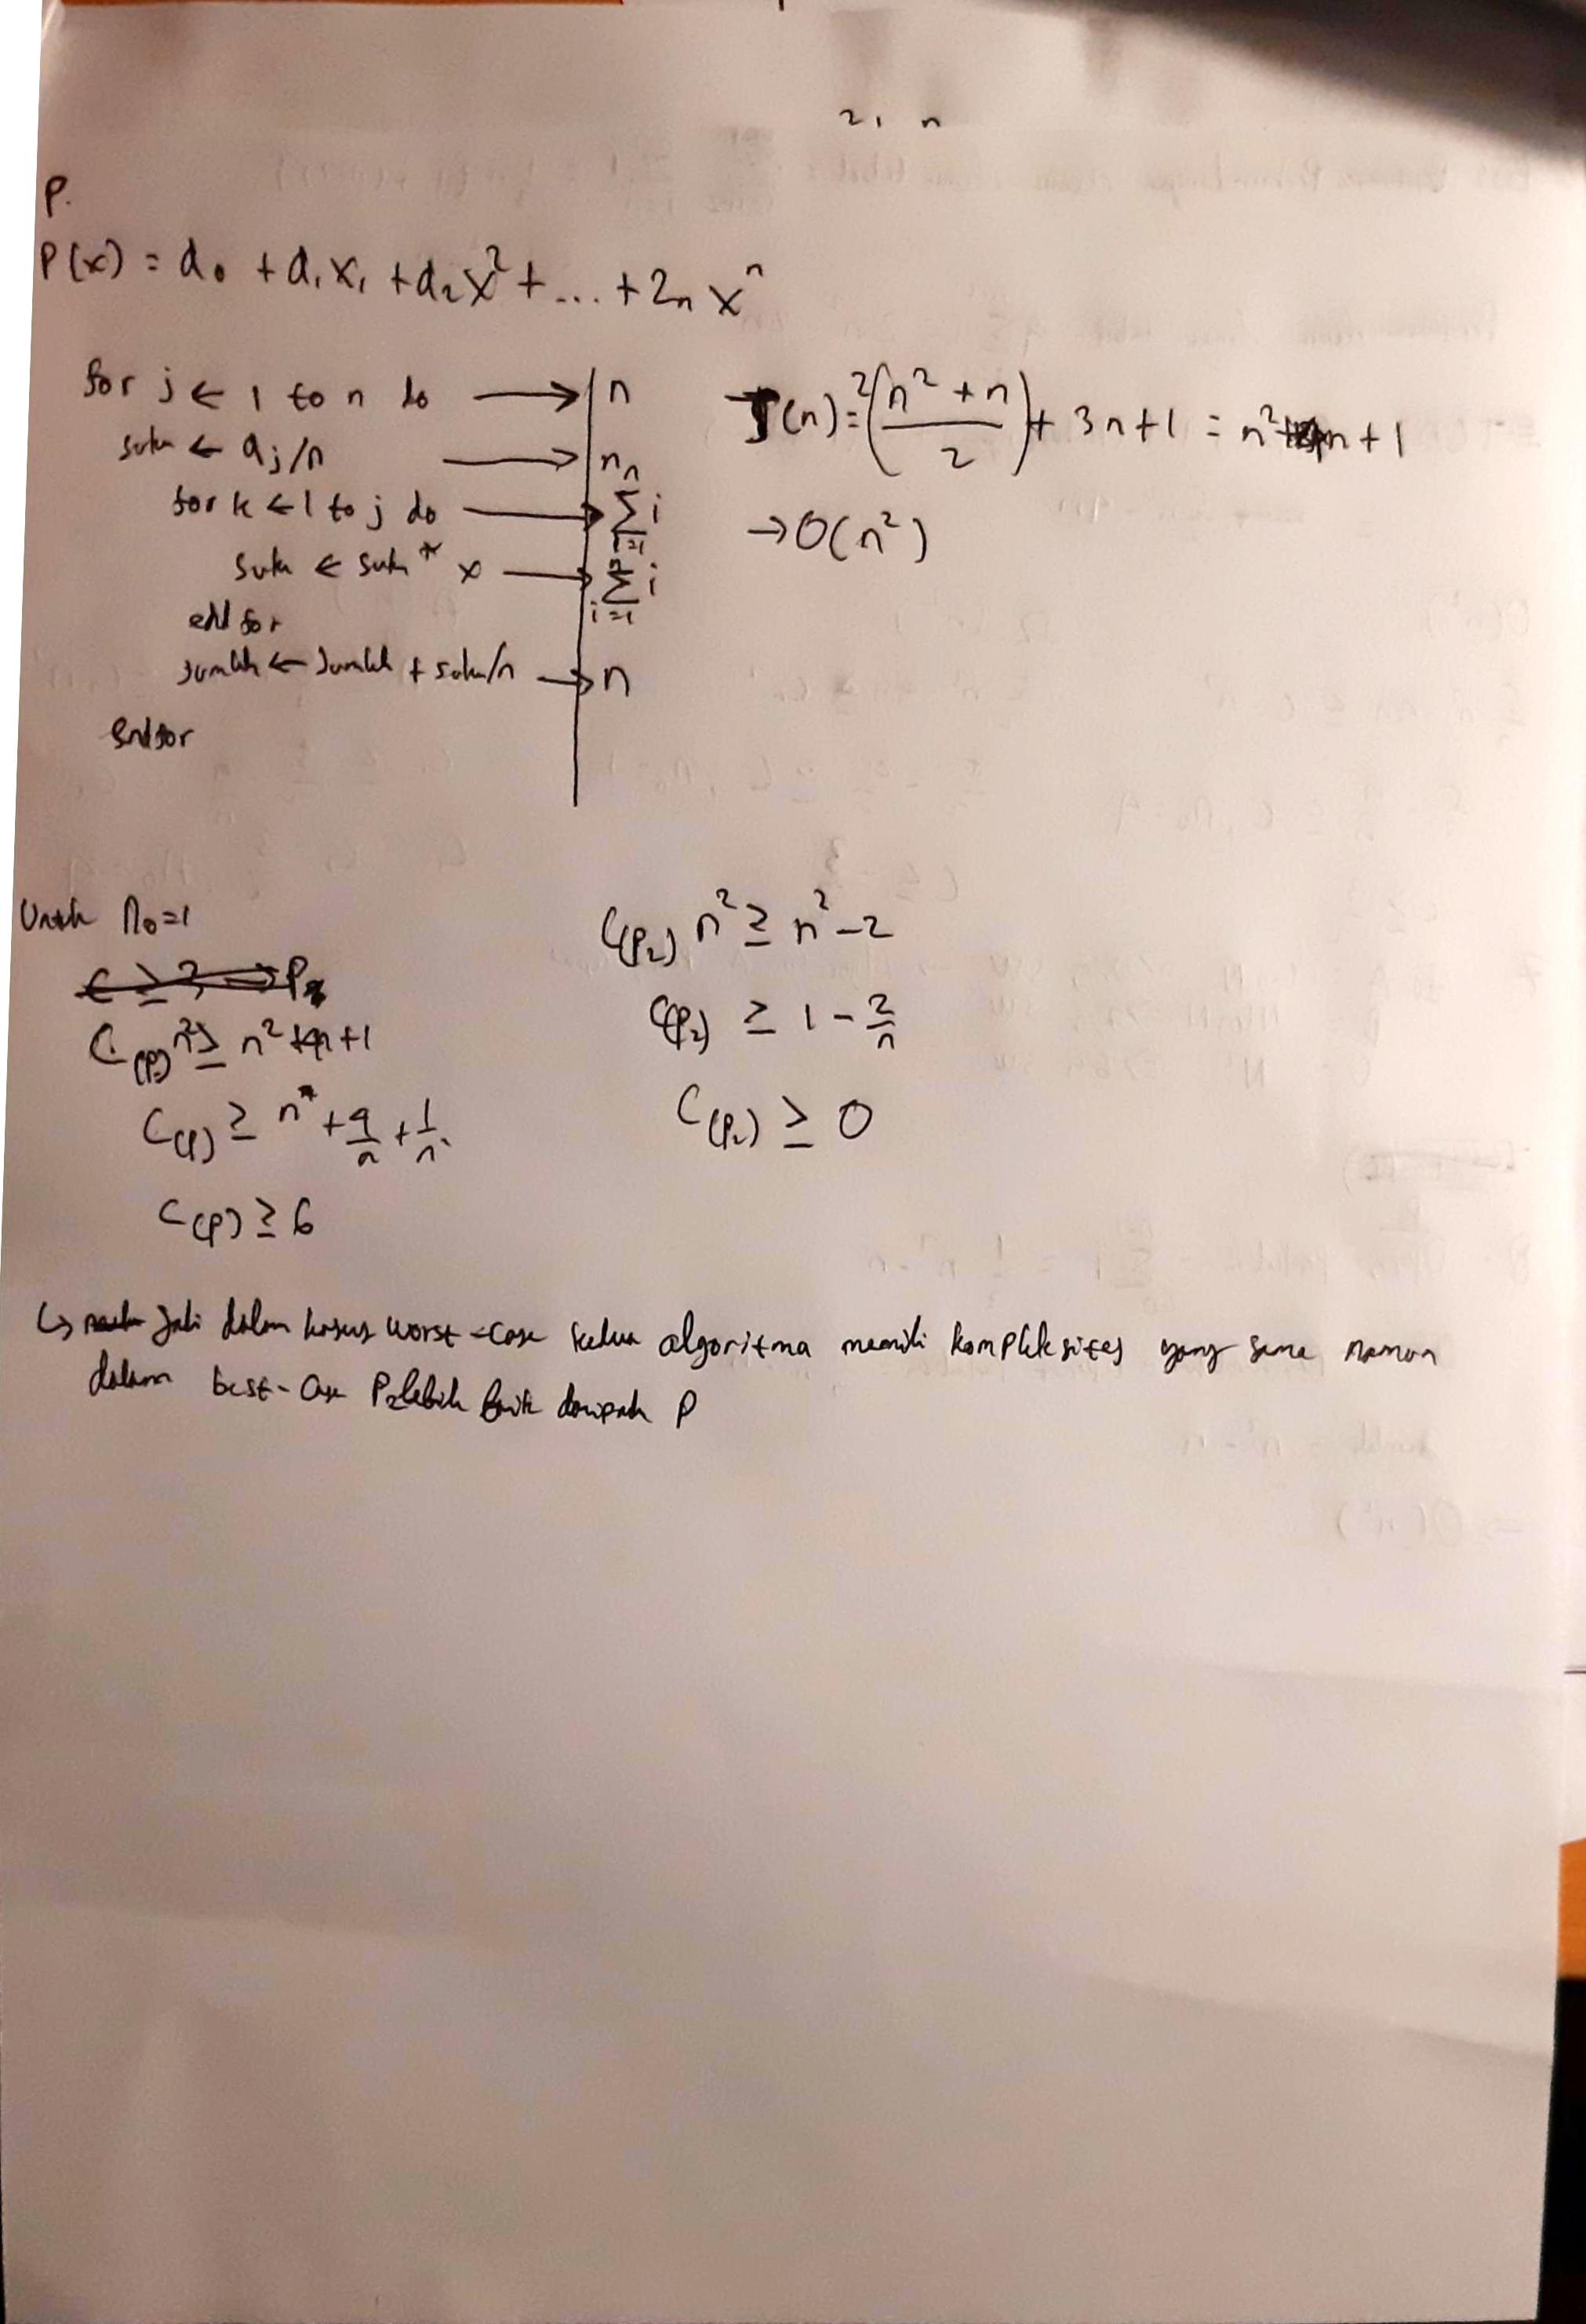 2, n
P.
P(x) = d₀ + d₁x₁ + d₂x² + ... + 2ₙ xⁿ
for j ← 1 to n do → n
suku ← aj/n → n
for k ← 1 to j do → n∑i=1 i
suku ← suku * x → n∑i=1 i
end for
jumlah ← jumlah + suku/n → n
endfor
T(n) = 2((n² + n)/2) + 3n + 1 = n² + 4n + 1
→ O(n²)
Untuk n₀=1
C(P) n² ≥ n² + 4n + 1
C(P) ≥ n* + 4/n + 1/n²
C(P) ≥ 6
C(P₂) n² ≥ n² - 2
C(P₂) ≥ 1 - 2/n
C(P₂) ≥ 0
↳ Jadi dalam kasus worst-case kedua algoritma memiliki kompleksitas yang sama namun
dalam best-case P₂ lebih baik daripada P